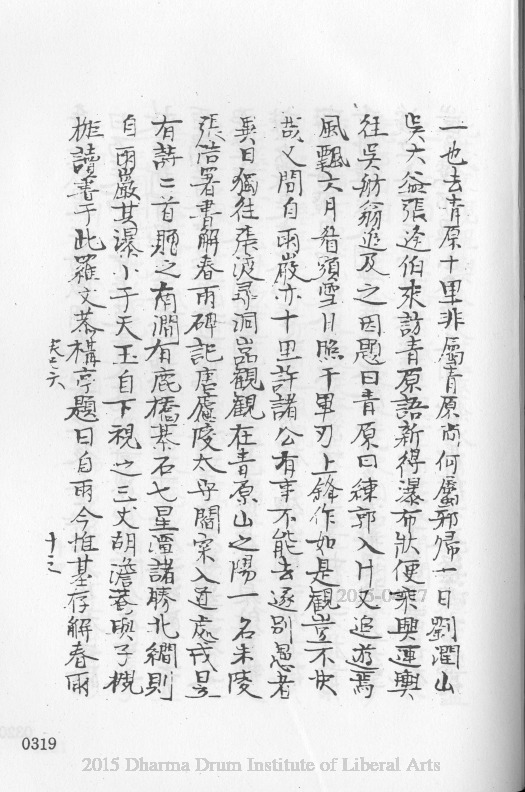 一也去青原十里非屬青原尚何屬邪歸一日劉潤山
吳大益張逢伯來訪青原語新得瀑布狀便乘興連輿
往吳舫翁追及之因題曰青原曰練郭入片又追遊焉
風飄六月眉須雪日照千軍刃上鋒作如是觀豈不快
哉又問自雨巖亦十里許諸公有事不能去遂別愚者
異日獨往張渡尋洞巖觀觀在青原山之陽一名朱陵
張浩署書解春雨碑記唐廬陵太守閻寀入道處戎昱
有詩二首贈之南澗有鹿橋棊石七星潭諸勝北澗則
自雨巖其瀑小于天玉自下視之三丈胡澹菴與子槻
拒讀書于此羅文恭構亭題曰自雨今惟基存解春雨
卷之六
十三
2015-0
7
0319
2015 Dharma Drum Institute of Liberal Arts